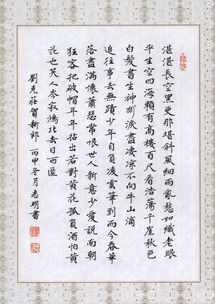 湛湛長空黑更那堪斜風細雨亂愁如織老眼
平生空四海賴有高樓百尺看浩蕩千崖秋色
白髮書生神州淚盡凄涼不向牛山滴
追往事去無蹟少年自負凌雲筆到而今春華
落盡滿懷蕭瑟常恨世人新意少愛說南朝
狂客把破帽年年拈出若對黃花孤負酒怕黃
花也笑人岑寂鴻北去日西匿
劉克莊賀新郎 丙申冬月志明書